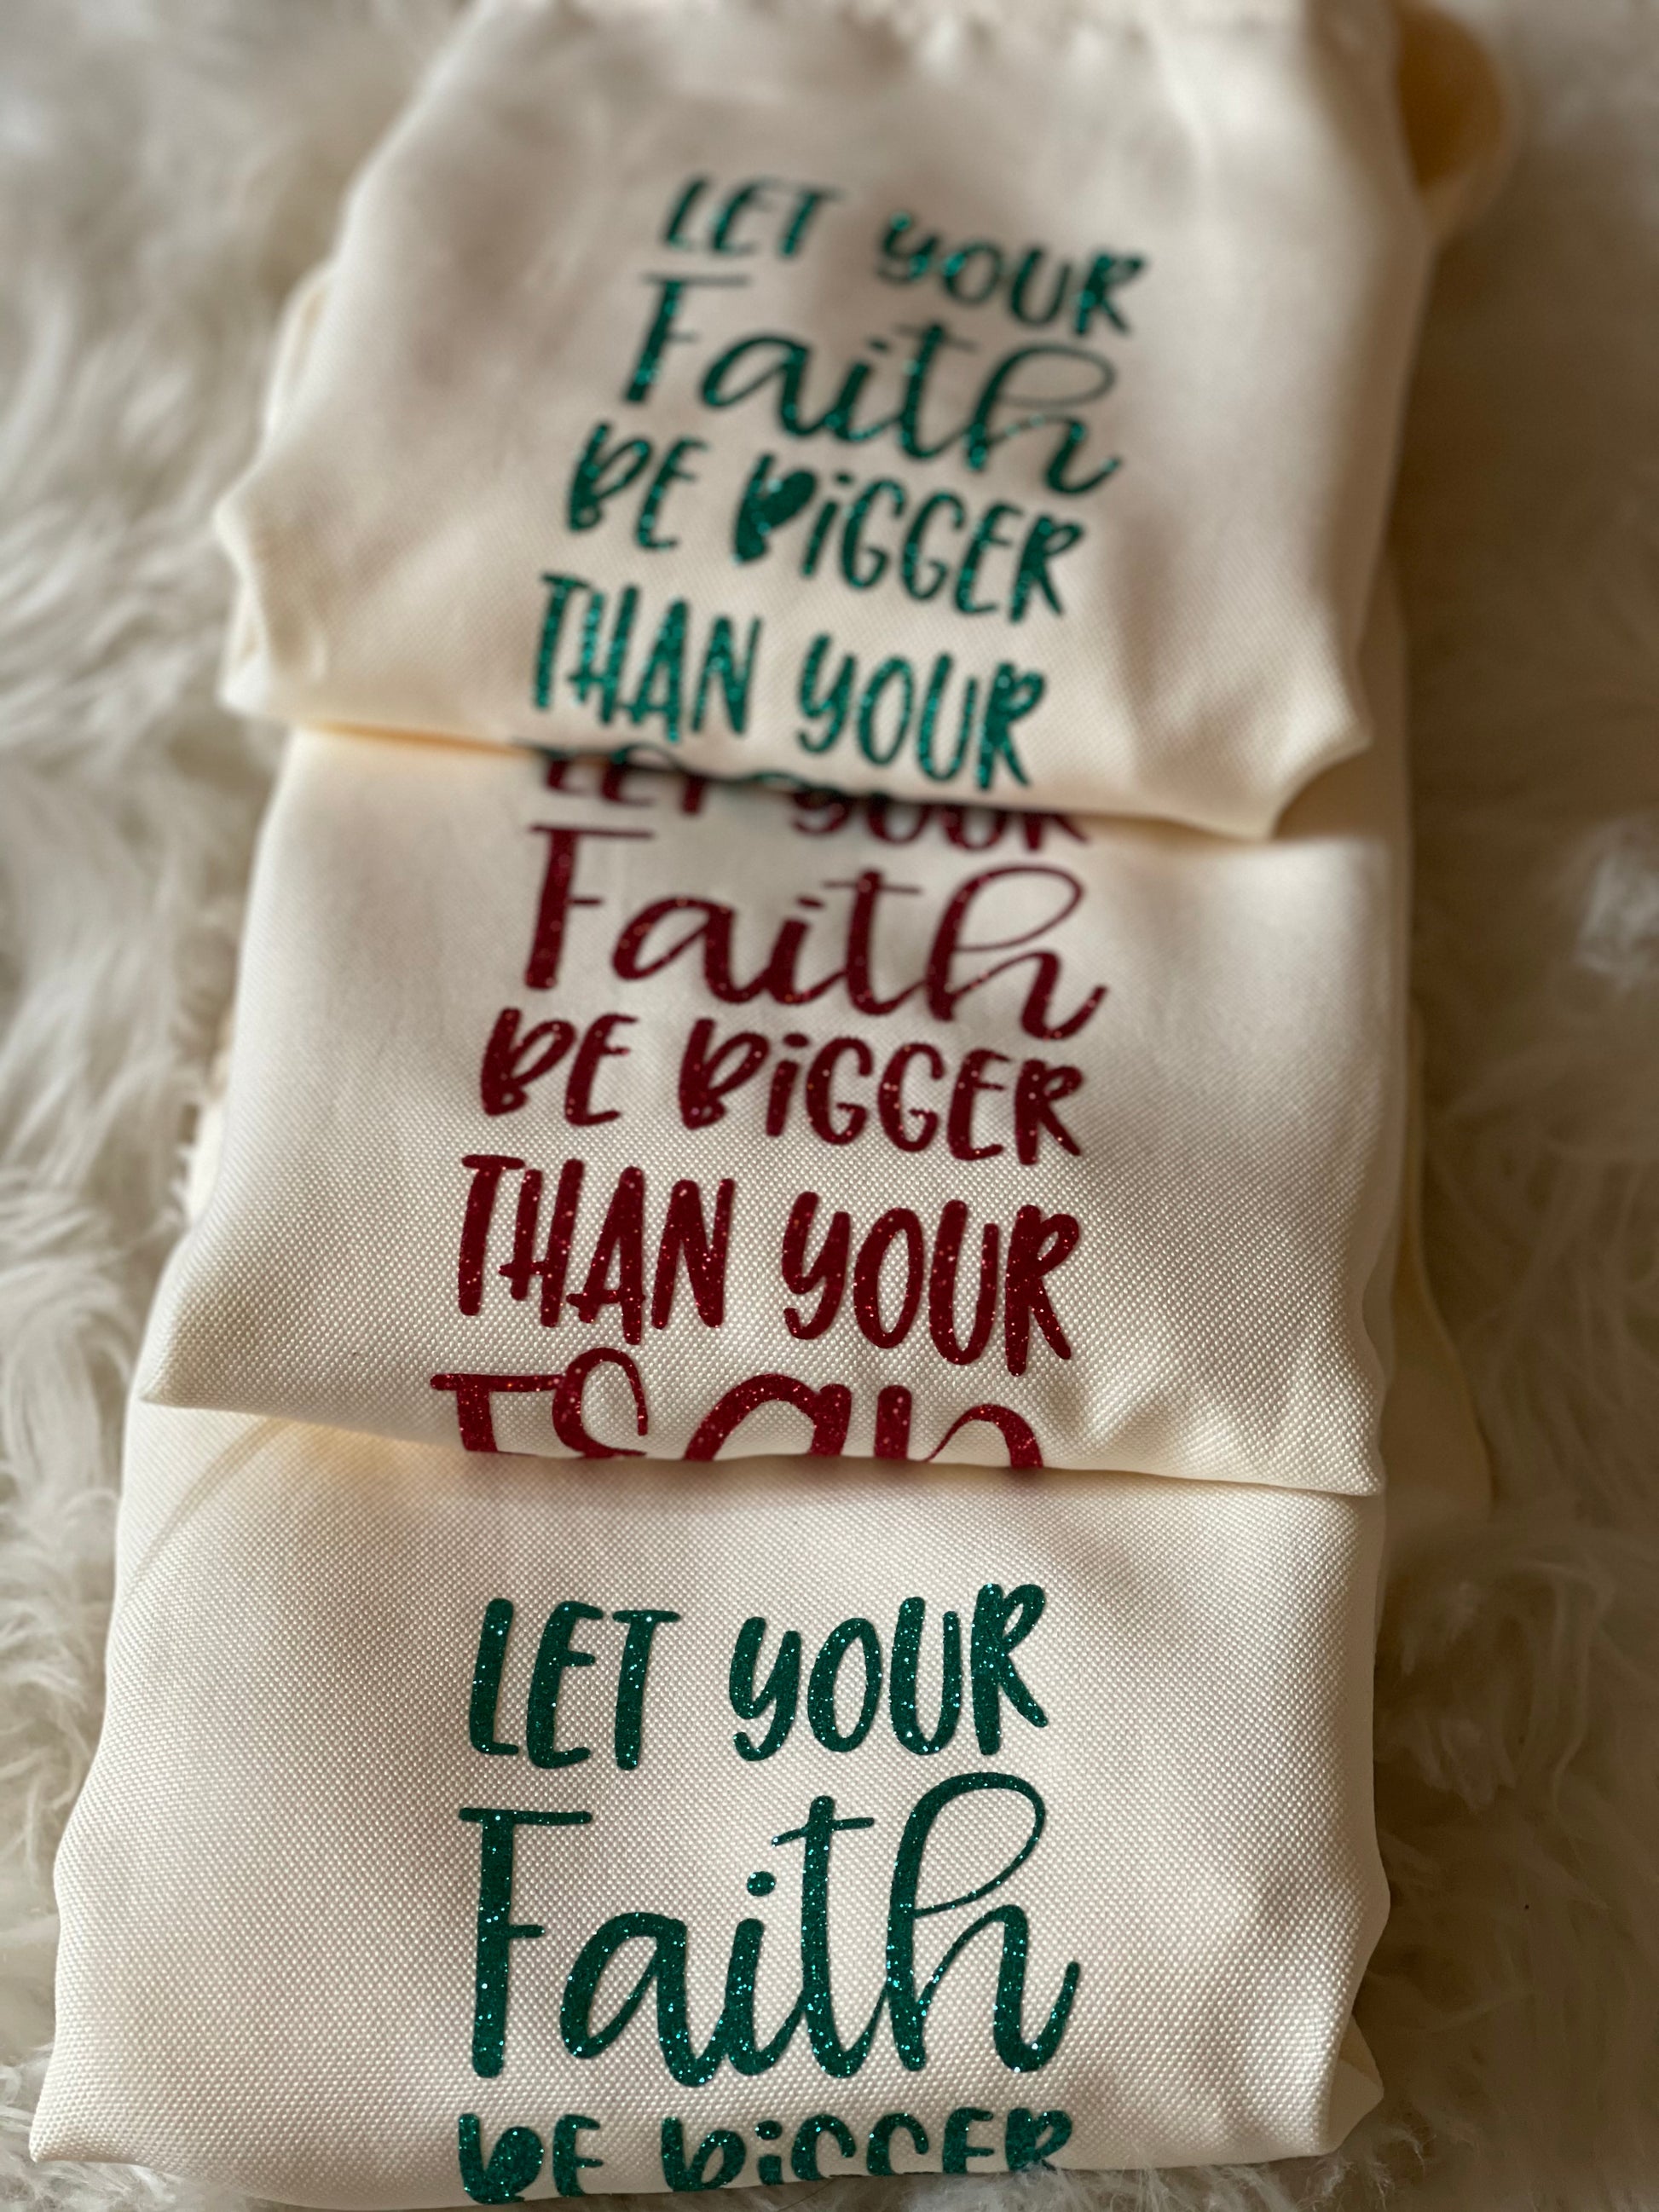 LET YOUR
Faith
BE BiGGER
THAN YOUR
LET YOUR
Faith
BE BiGGER
THAN YOUR
LET YOUR
Faith
BE BiGGER